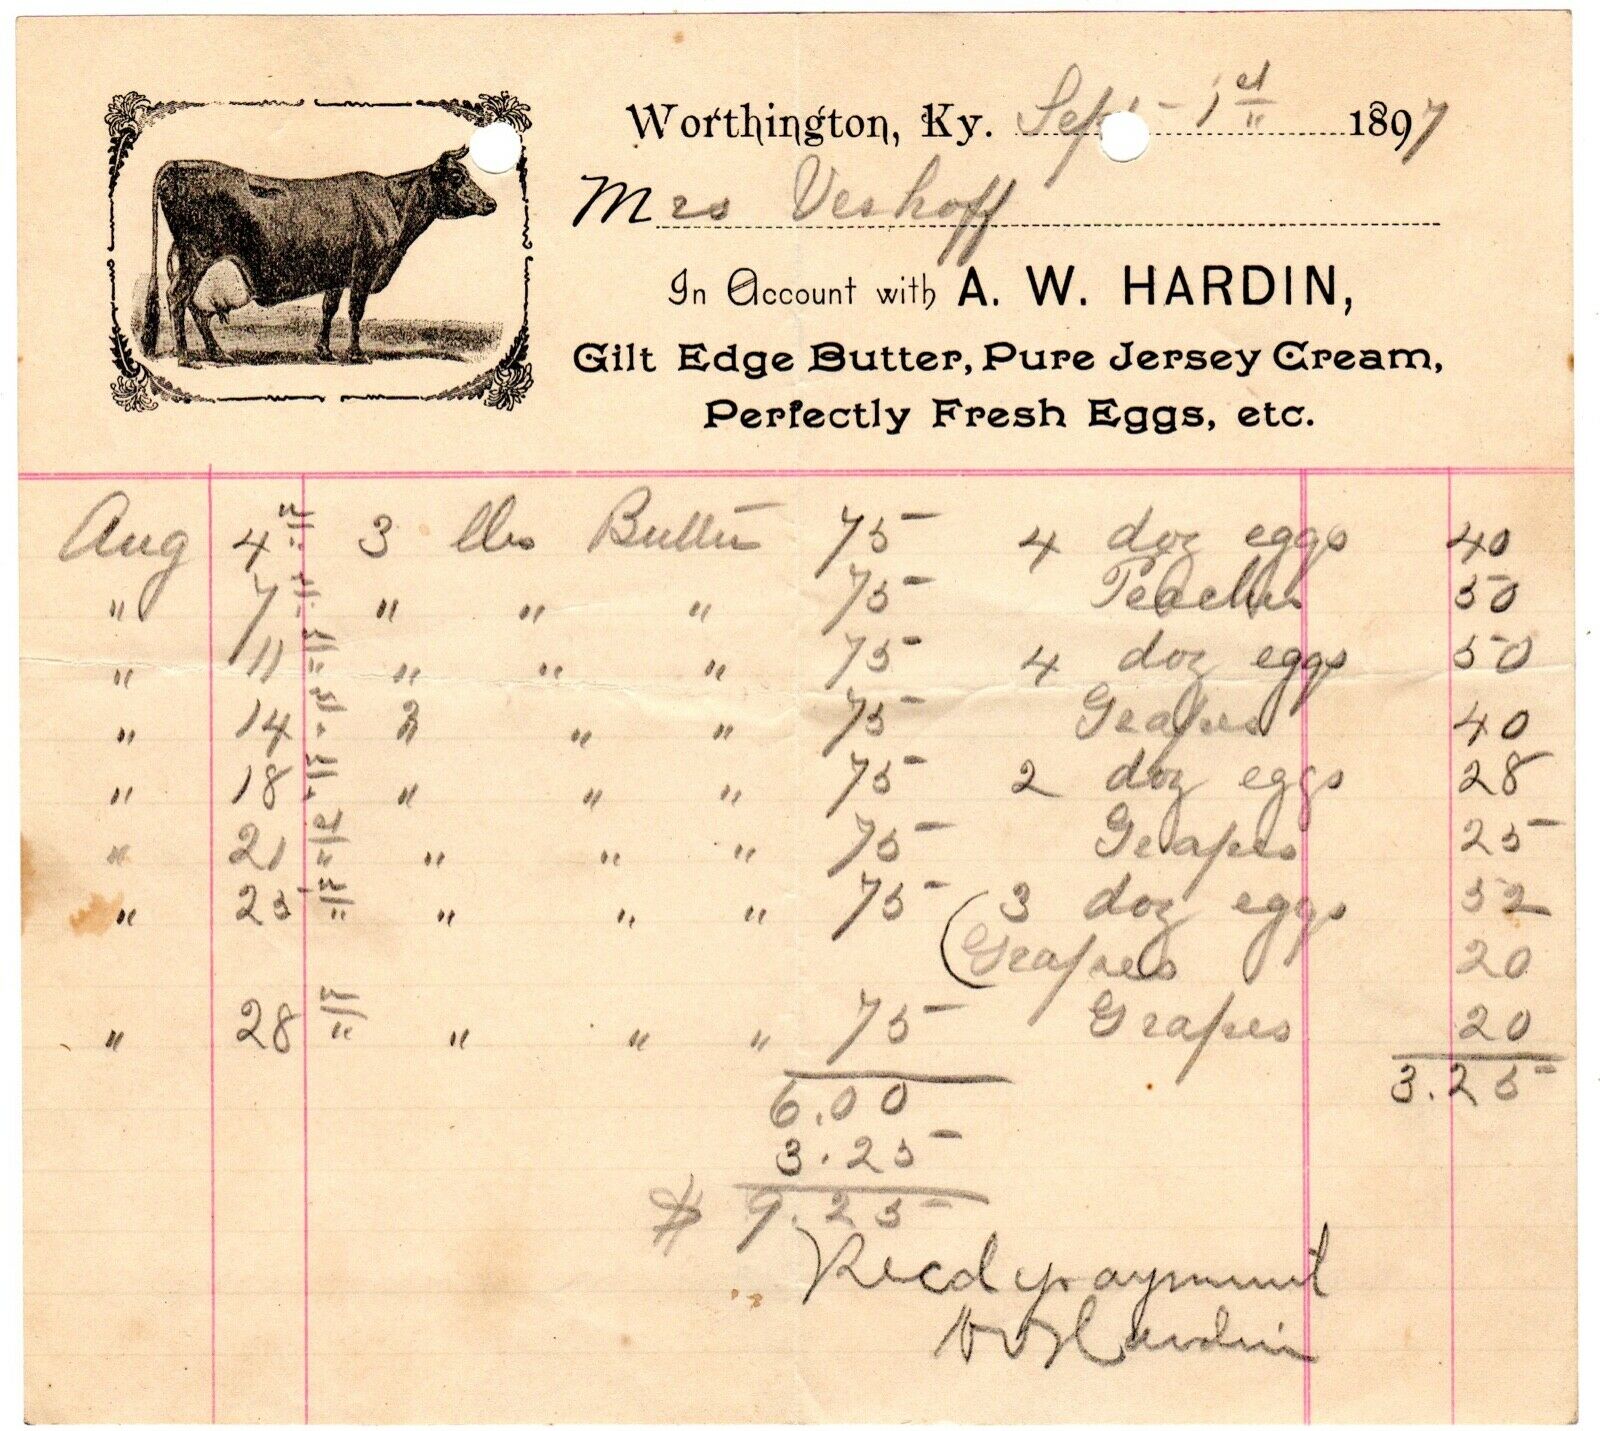 Worthington, Ky. Sep - 1st 1897
Mrs Veshoff
In Account with A. W. HARDIN,
Gilt Edge Butter, Pure Jersey Cream,
Perfectly Fresh Eggs, etc.
Aug 4th 3 lbs Butter 75 4 doz eggs 40
" 7th " " " 75 Peaches 50
" 11th " " " 75 4 doz eggs 50
" 14th 3 " " 75 Grapes 40
" 18th " " " 75 2 doz eggs 28
" 21st " " " 75 Grapes 25
" 25th " " " 75 (3 doz eggs 52
Grapes 20
" 28th " " " 75 Grapes 20
6.00 3.25
3.25
$ 9.25
Recd payment
Hardin